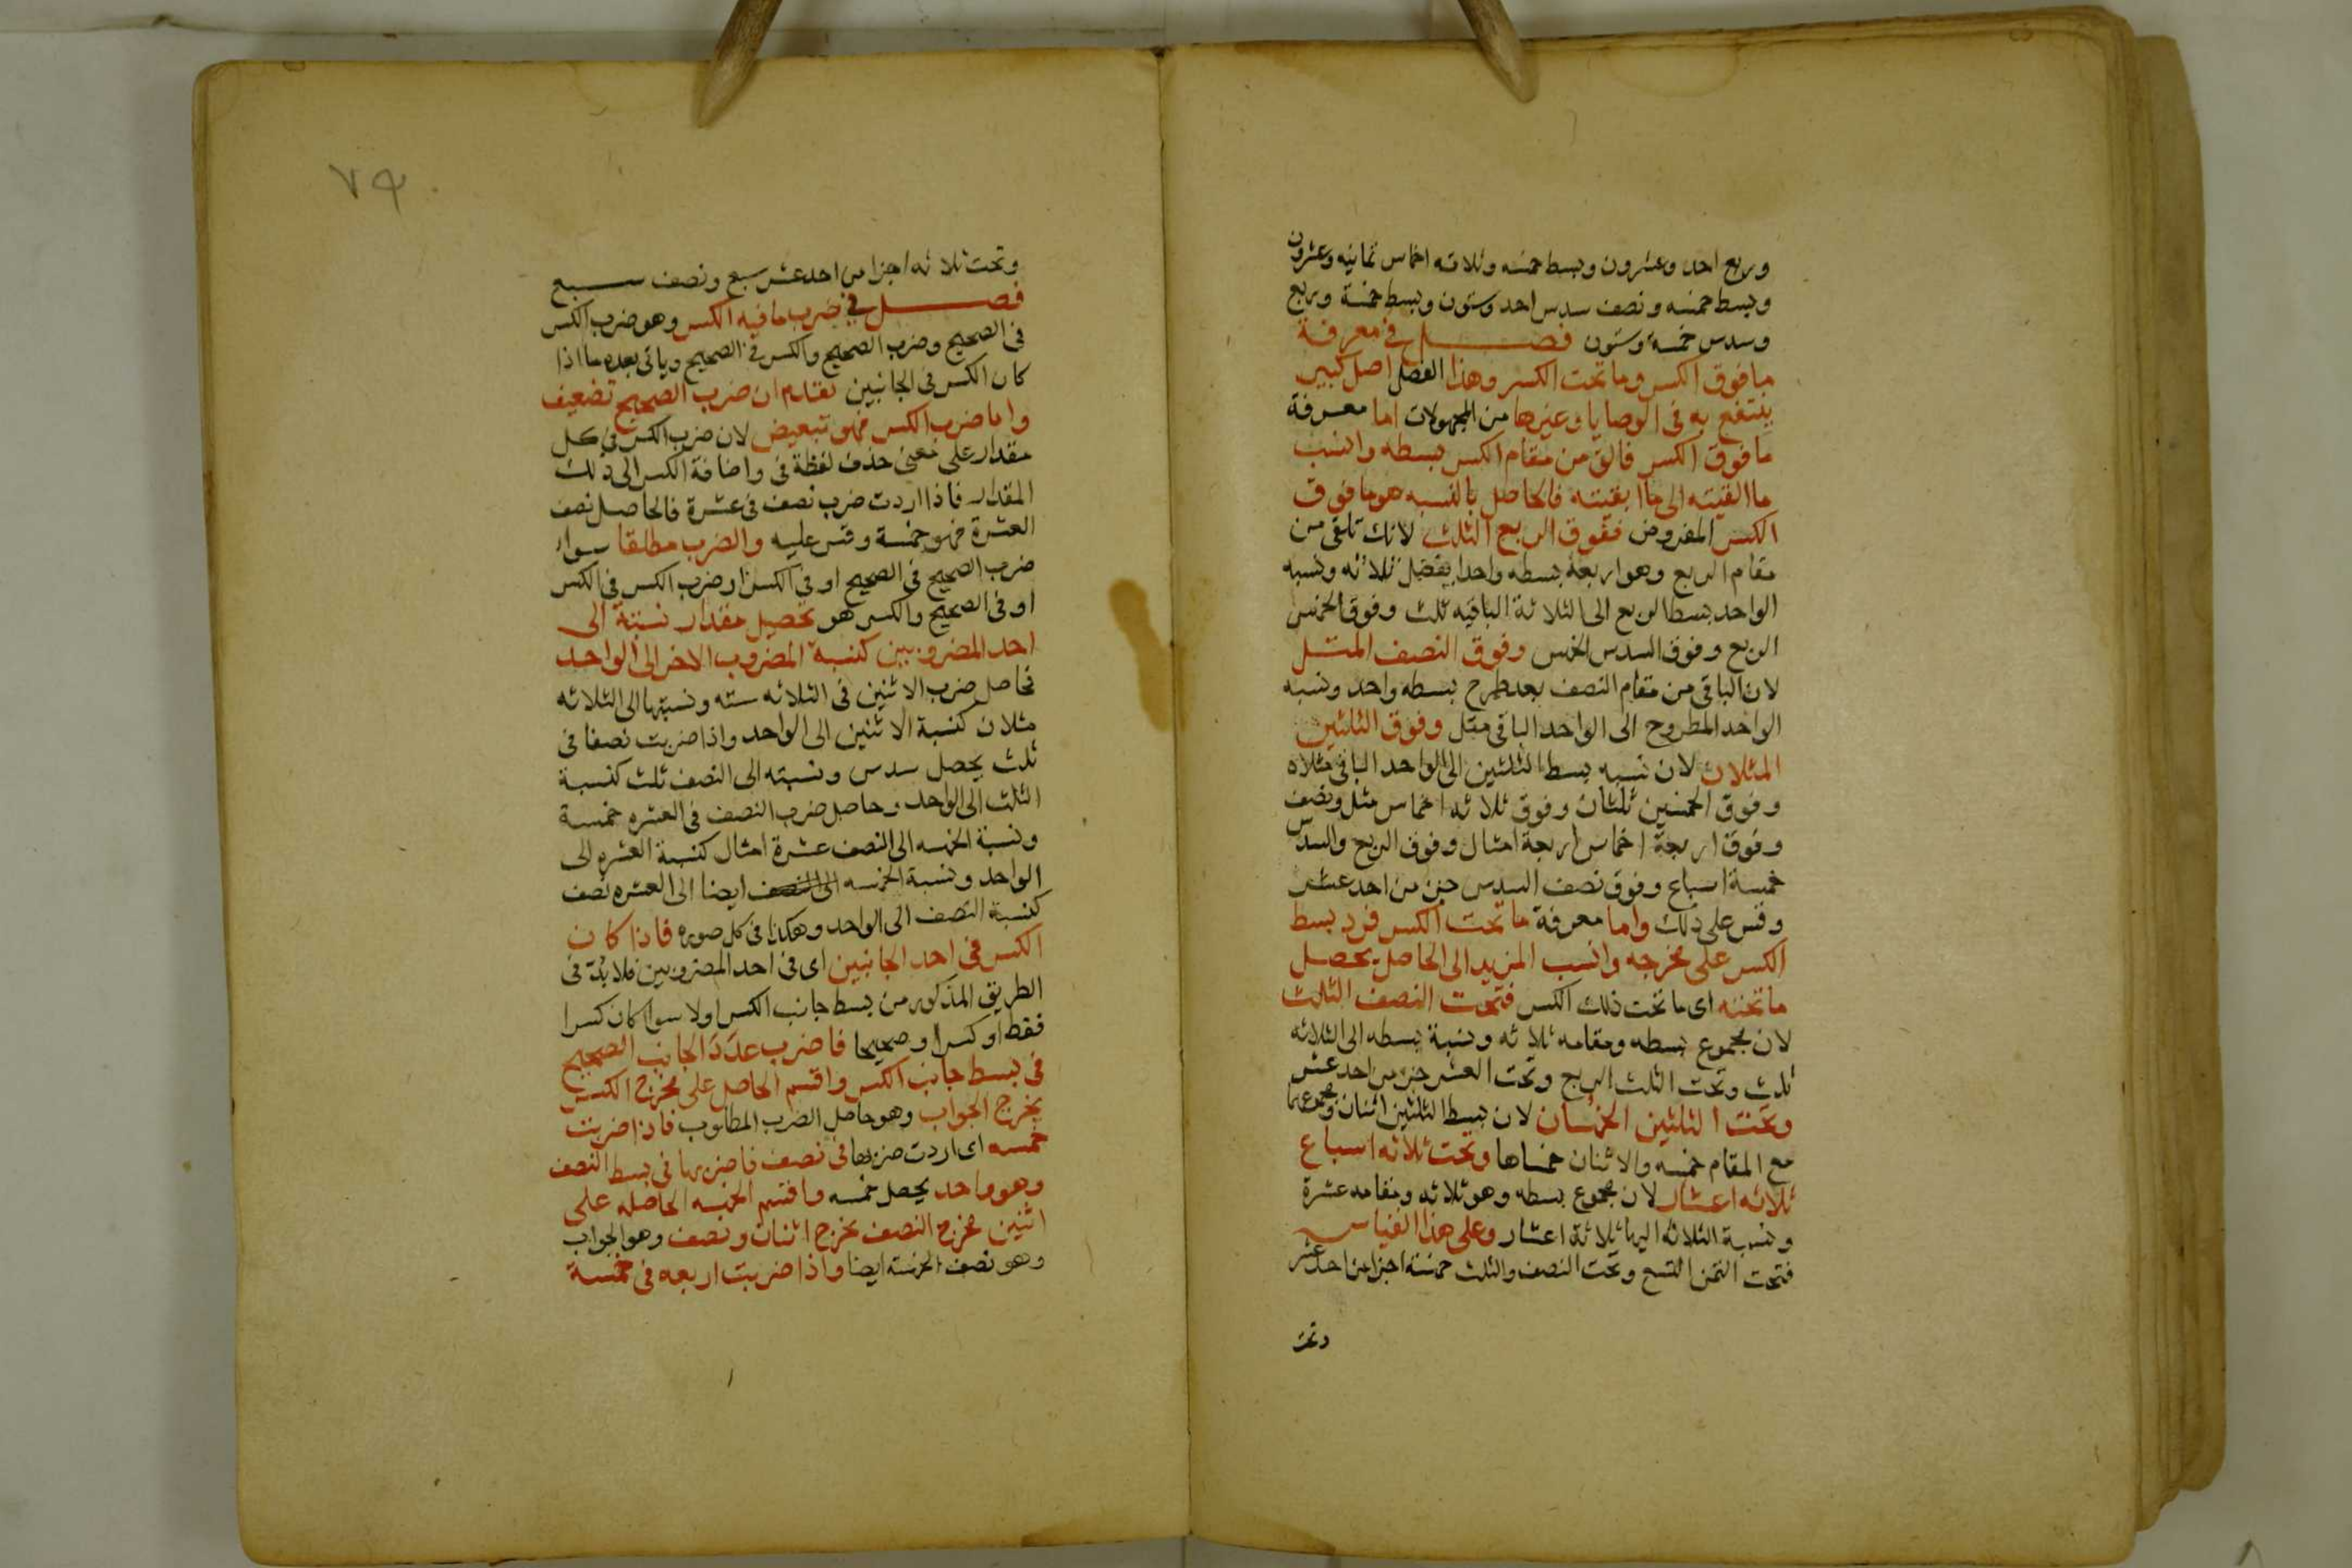 وربع احد وعشرون وبسط خمسه وثلاثه اخماس ثمانيه وعشرون
وبسط خمسه ونصف سدس احد وستون وبسط خمسة وربع
وسدس خمسة وستون فصل في معرفة
ما فوق الكسر وما تحت الكسر وهذا الفصل اصل كبير
ينتفع به في الوصايا وغيرها من المجهولات اما معرفة
ما فوق الكسر فالق من مقام الكسر بسطه وانسب
ما القيته الى ما ابقيته فالحاصل بالنسبه هو ما فوق
الكسر المفروض ففوق الربع الثلث لانك تلقى من
مقام الربع وهو اربعة بسطه واحدا يفضل ثلاثه ونسبه
الواحد بسط الربع الى الثلاثة الباقيه ثلث وفوق الخمس
الربع وفوق السدس الخمس وفوق النصف المثل
لان الباقي من مقام النصف بعد طرح بسطه واحد ونسبه
الواحد المطروح الى الواحد الباقي مثل وفوق الثلثين
المثلان لان نسبه بسط الثلثين الى الواحد الباقي مثلاه
وفوق الخمسين ثلثان وفوق ثلاثه اخماس مثل ونصف
وفوق اربعة اخماس اربعة امثال وفوق الربع والسدس
خمسة اسباع وفوق نصف السدس جزء من احد عشر
وقس على ذلك واما معرفة ما تحت الكسر فزد بسط
الكسر على مخرجه وانسب المزيد الى الحاصل يحصل
ما تحته اى ما تحت ذلك الكسر فتحت النصف الثلث
لان مجموع بسطه ومقامه ثلاثه ونسبة بسطه الى الثلاثه
ثلث وتحت الثلث الربع وتحت العشر جزء من احد عشر
وتحت الثلثين الخمسان لان بسط الثلثين اثنان ومجموعهما
مع المقام خمسه والاثنان خمساها وتحت ثلاثه اسباع
ثلاثه اعشار لان مجموع بسطه وهو ثلاثه ومقامه عشرة
ونسبة الثلاثه اليها ثلاثة اعشار وعلى هذا القياس
فتحت الثمن التسع وتحت النصف والثلث خمسة اجزا من احد عشر
وتحت
٧٩
وتحت ثلاثه اجزا من احد عشر سبع ونصف سبع
فصل في ضرب ما فيه الكسر وهو ضرب الكسر
في الصحيح وضرب الصحيح والكسر في الصحيح وياتى بعده ما اذا
كان الكسر في الجانبين تقدم ان ضرب الصحيح تضعيف
واما ضرب الكسر فهو تبعيض لان ضرب الكسر في كل
مقدار على معنى حذف لفظة في واضافة الكسر الى ذلك
المقدار فاذا اردت ضرب نصف في عشرة فالحاصل نصف
العشرة فهو خمسة وقس عليه والضرب مطلقا سواء
ضرب الصحيح في الصحيح او في الكسر او ضرب الكسر في الكسر
او في الصحيح والكسر هو تحصيل مقدار نسبته الى
احد المضروبين كنسبة المضروب الاخر الى الواحد
فحاصل ضرب الاثنين في الثلاثه سته ونسبتها الى الثلاثه
مثلان كنسبة الاثنين الى الواحد واذا ضربت نصفا في
ثلث يحصل سدس ونسبته الى النصف ثلث كنسبة
الثلث الى الواحد وحاصل ضرب النصف في العشره خمسة
ونسبة الخمسه الى النصف عشرة امثال كنسبة العشره الى
الواحد ونسبة الخمسه الى النصف ايضا الى العشره نصف
كنسبة النصف الى الواحد وهكذا في كل صوره فاذا كان
الكسر في احد الجانبين اى في احد المضروبين فلا بد في
الطريق المذكور من بسط جانب الكسر اولا سواء كان كسرا
فقط او كسرا وصحيحا فاضرب عدد الجانب الصحيح
في بسط جانب الكسر واقسم الحاصل على مخرج الكسر
يخرج الجواب وهو حاصل الضرب المطلوب فاذا ضربت
خمسه اى اردت ضربها في نصف فاضربها في بسط النصف
وهو واحد يحصل خمسه واقسم الخمسه الحاصله على
اثنين مخرج النصف يخرج اثنان ونصف وهو الجواب
وهو نصف الخمسة ايضا واذا ضربت اربعه في خمسة